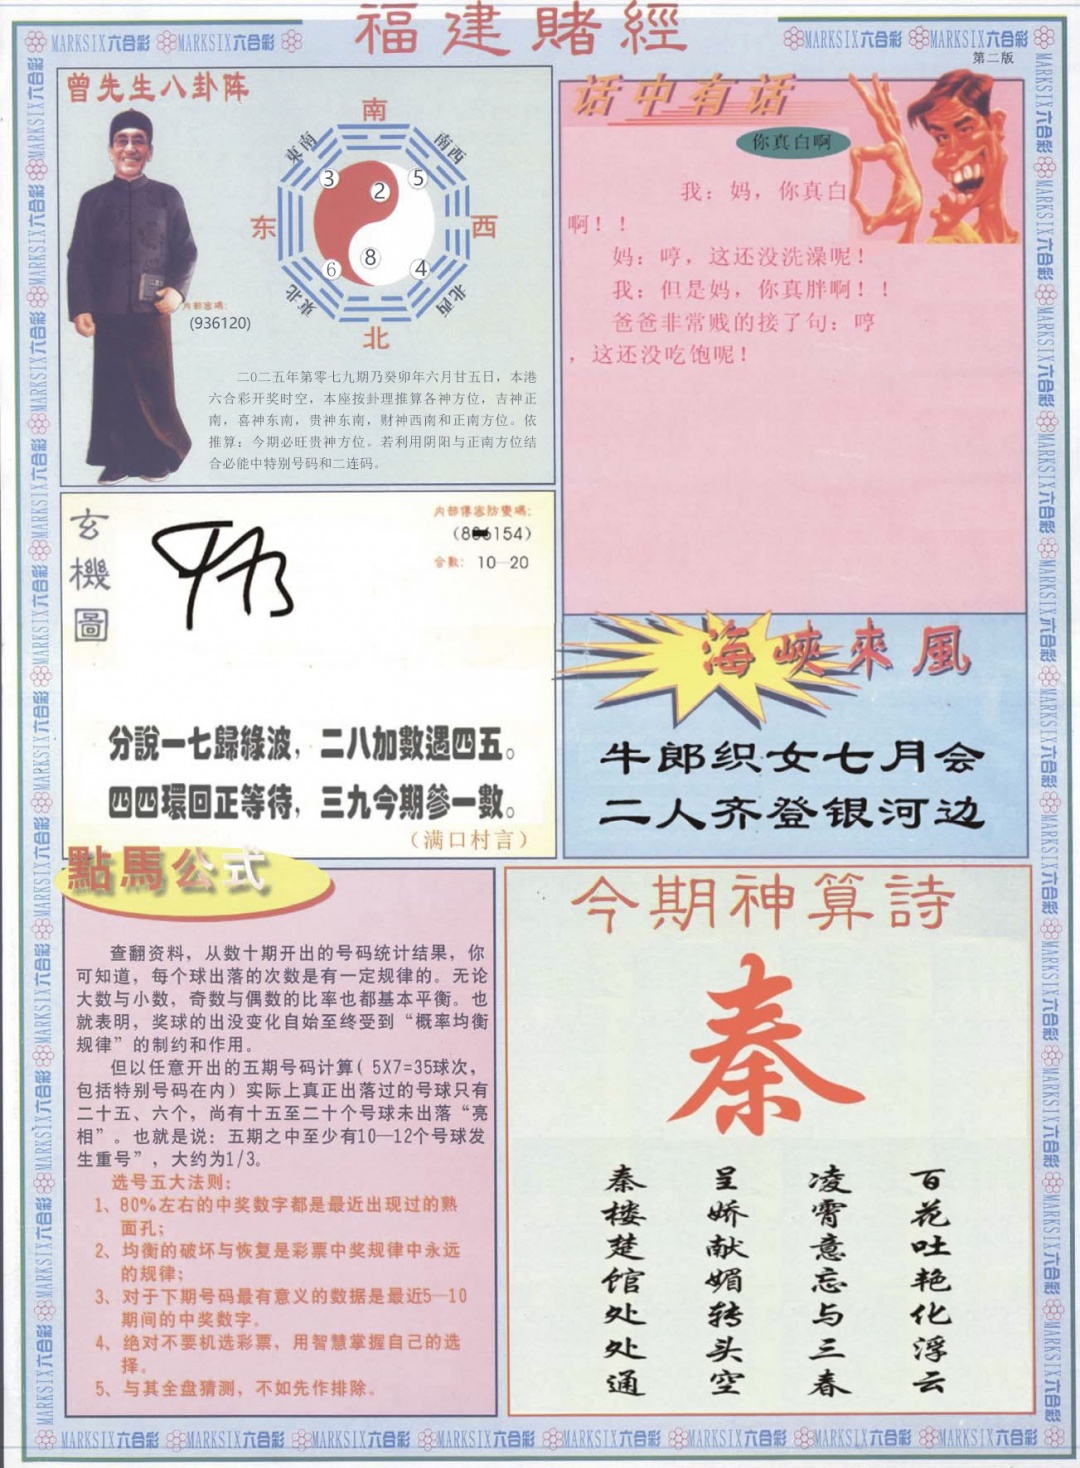 福建賭經
MARKSIX六合彩 MARKSIX六合彩
MARKSIX六合彩 MARKSIX六合彩
第二版
曾先生八卦阵
南
東南
南西
东
西
東北
北西
北
3
2
5
6
8
4
内部密碼:
(936120)
二〇二五年第零七九期乃癸卯年六月廿五日，本港
六合彩开奖时空，本座按卦理推算各神方位，吉神正
南，喜神东南，贵神东南，财神西南和正南方位。依
推算：今期必旺贵神方位。若利用阴阳与正南方位结
合必能中特别号码和二连码。
话中有话
你真白啊
我：妈，你真白
啊！！
妈：哼，这还没洗澡呢！
我：但是妈，你真胖啊！！
爸爸非常贱的接了句：哼
，这还没吃饱呢！
玄機圖
内部傳密防變碼:
154)
合數: 10—20
分說一七歸綠波，二八加數遇四五。
四四環回正等待，三九今期參一數。
（满口村言）
海峽來風
牛郎织女七月会
二人齐登银河边
點馬公式
查翻资料，从数十期开出的号码统计结果，你
可知道，每个球出落的次数是有一定规律的。无论
大数与小数，奇数与偶数的比率也都基本平衡。也
就表明，奖球的出没变化自始至终受到“概率均衡
规律”的制约和作用。
但以任意开出的五期号码计算( 5X7=35球次，
包括特别号码在内）实际上真正出落过的号球只有
二十五、六个，尚有十五至二十个号球未出落“亮
相”。也就是说：五期之中至少有10—12个号球发
生重号”，大约为1/3。
选号五大法则:
1、80%左右的中奖数字都是最近出现过的熟
面孔;
2、均衡的破坏与恢复是彩票中奖规律中永远
的规律;
3、对于下期号码最有意义的数据是最近5—10
期间的中奖数字。
4、绝对不要机选彩票，用智慧掌握自己的选
择。
5、与其全盘猜测，不如先作排除。
今期神算詩
秦
百花吐艳化浮云
凌霄意忘与三春
呈娇献媚转头空
秦楼楚馆处处通
MARKSIX六合彩 MARKSIX六合彩 MARKSIX六合彩 MARKSIX六合彩 MARKSIX六合彩 MARKSIX六合彩 MARKSIX六合彩 MARKSIX六合彩